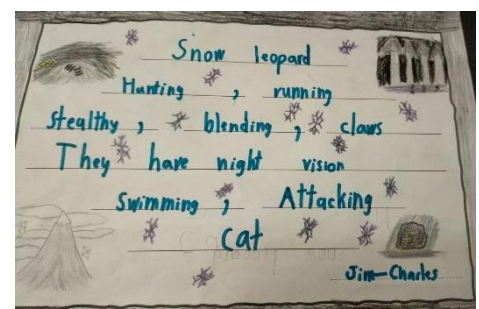 Snow leopard
Hunting, running
stealthy, blending, claws
They have night vision
Swimming, Attacking
cat
Jim-Charles